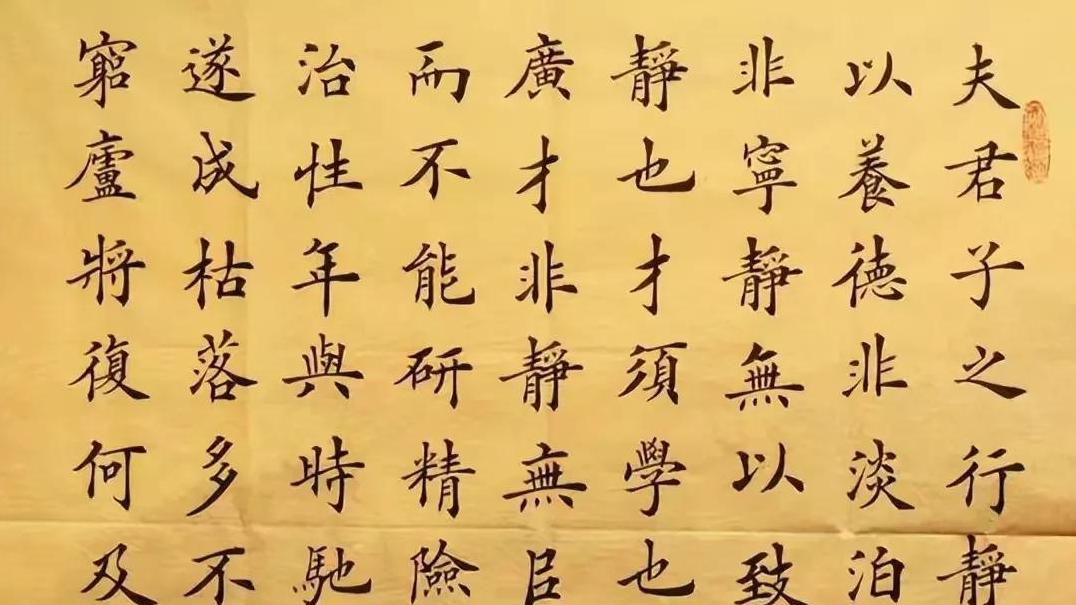 夫君子之行靜
以養德非淡泊
非寧靜無以致
靜也才須學也
廣才非靜無㠯
而不能研精險
治性年與時馳
遂成枯落多不
窮廬將復何及